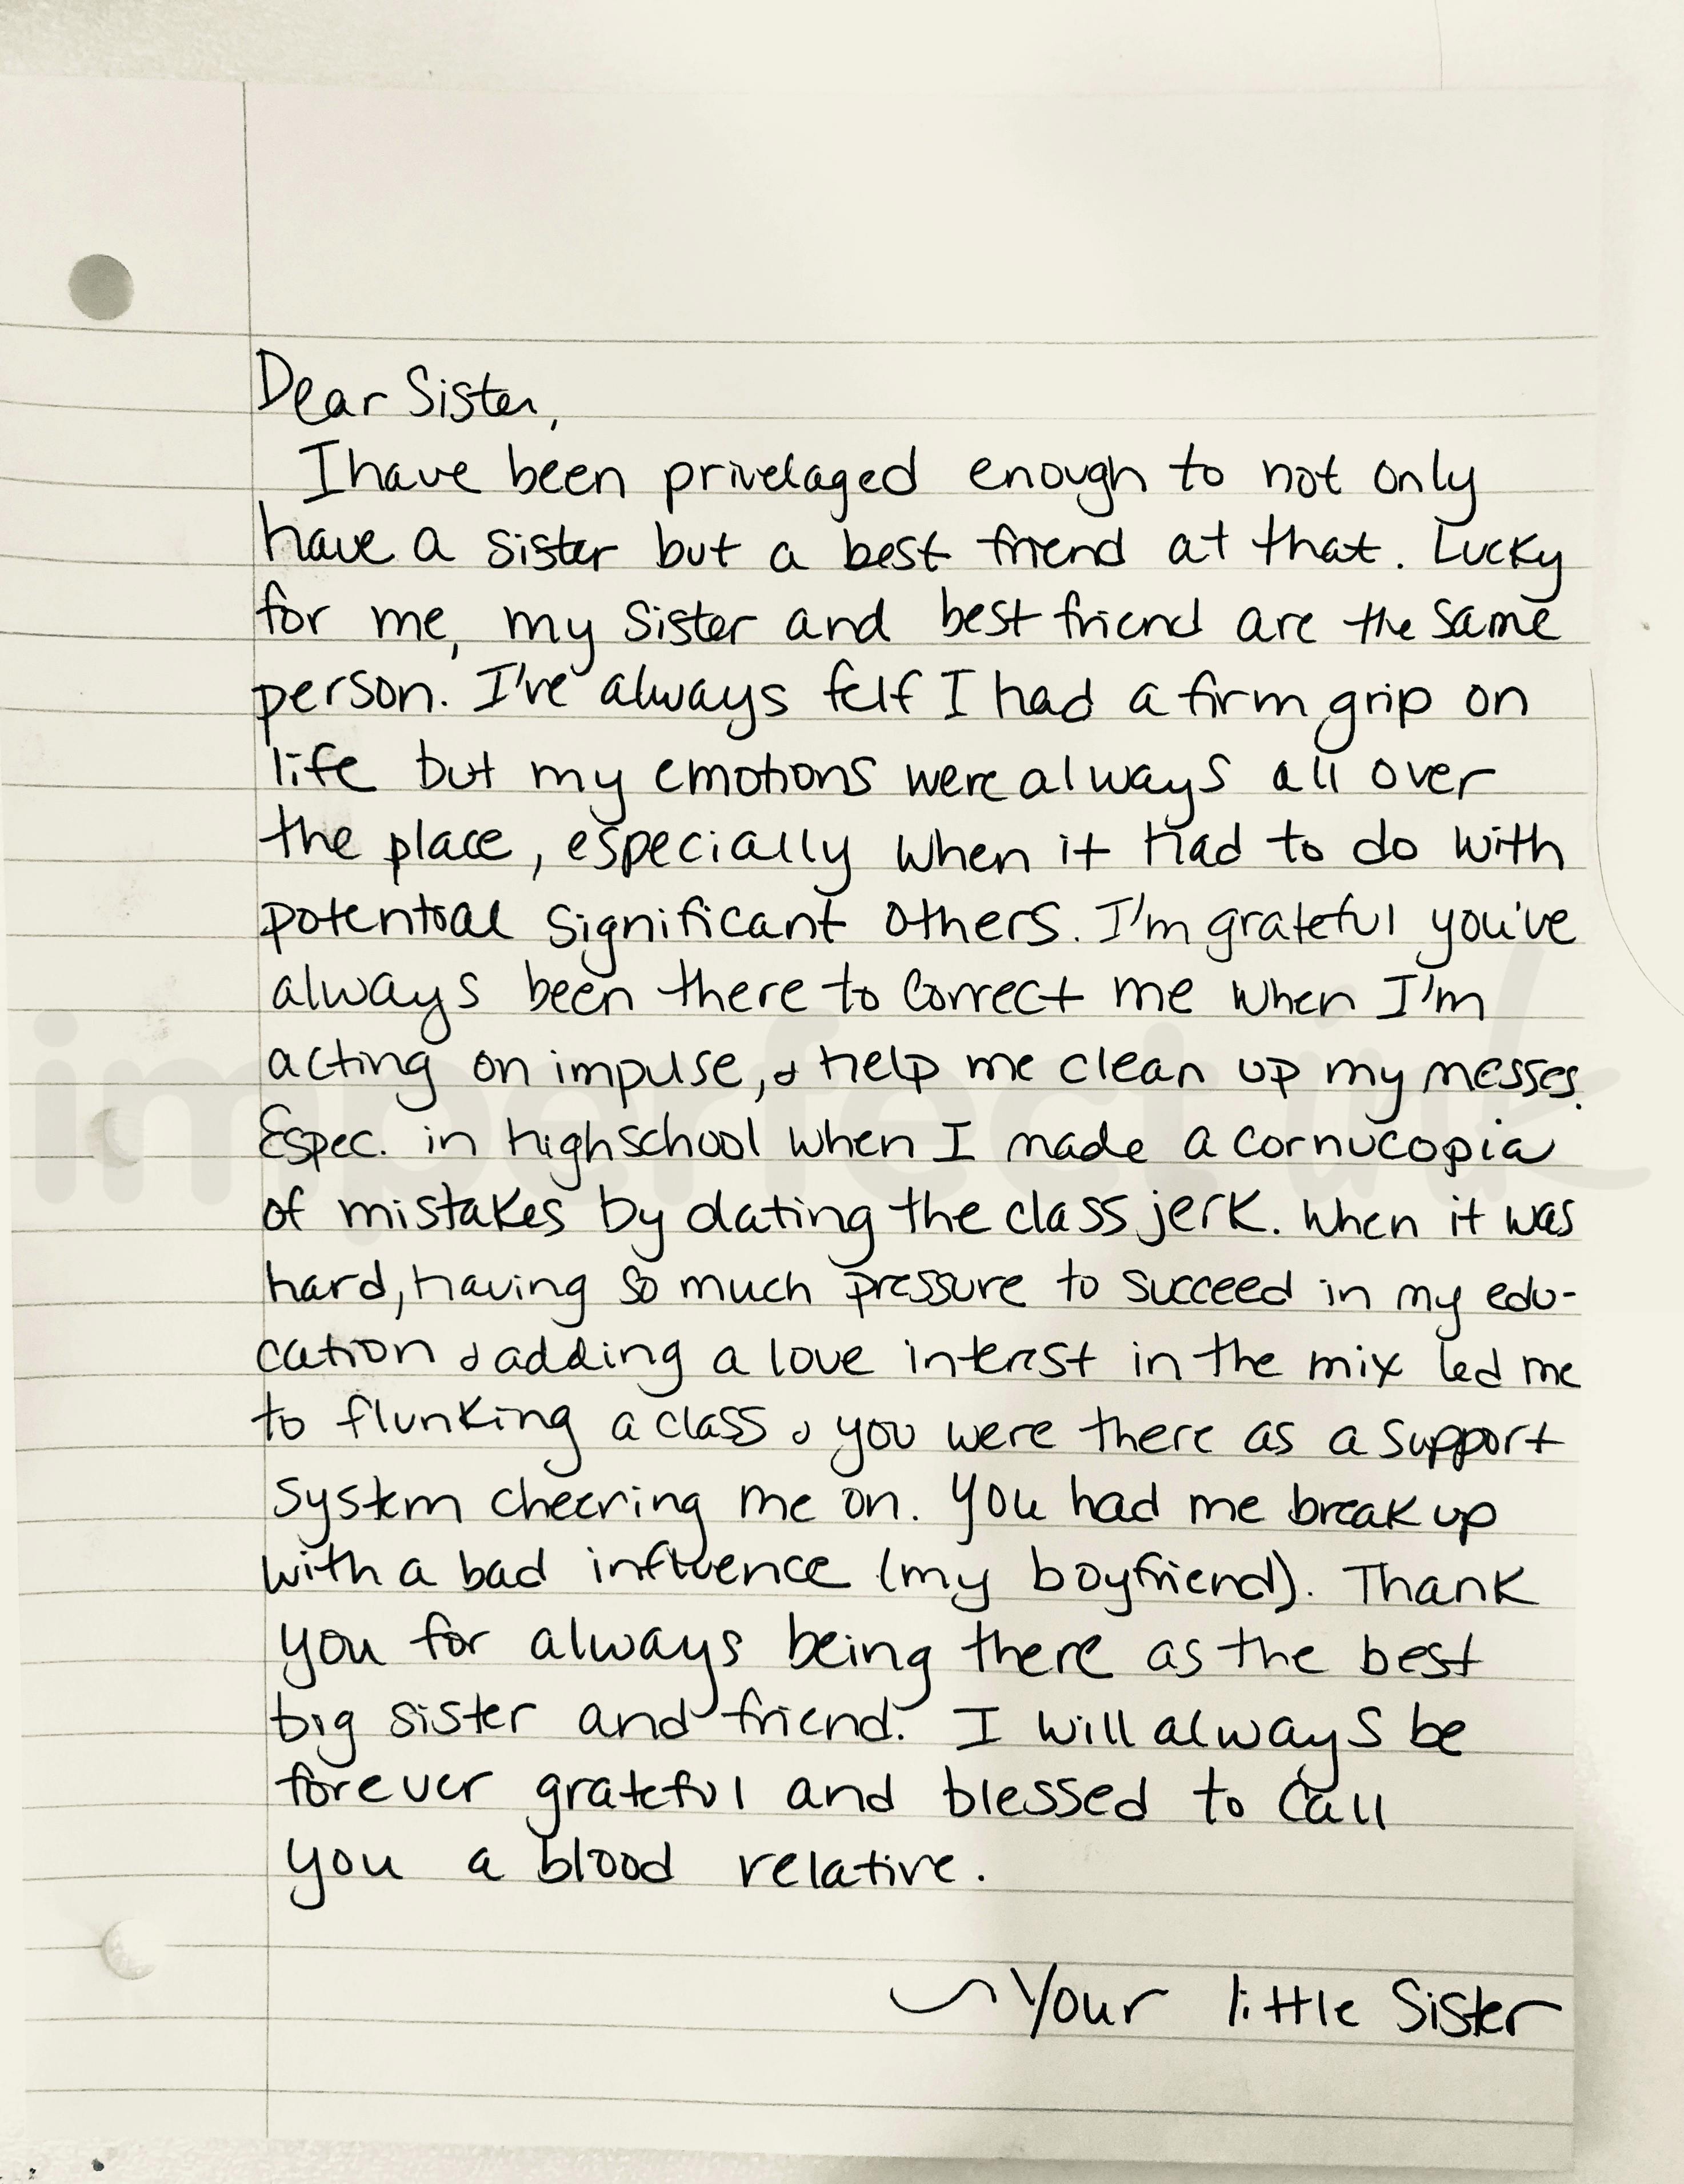 Dear Sister,
I have been privelaged enough to not only
have a sister but a best friend at that. Lucky
for me, my sister and best friend are the same
person. I've always felf I had a firm grip on
life but my emotions were always all over
the place, especially when it had to do with
potential significant others. I'm grateful you've
always been there to correct me when I'm
acting on impulse, & help me clean up my messes.
Espec. in highschool when I made a cornucopia
of mistakes by dating the class jerk. When it was
hard, having so much pressure to succeed in my edu-
cation & adding a love interest in the mix led me
to flunking a class & you were there as a support
system cheering me on. You had me break up
with a bad influence (my boyfriend). Thank
you for always being there as the best
big sister and friend. I will always be
forever grateful and blessed to call
you a blood relative.
~Your little Sister
imperfect ink